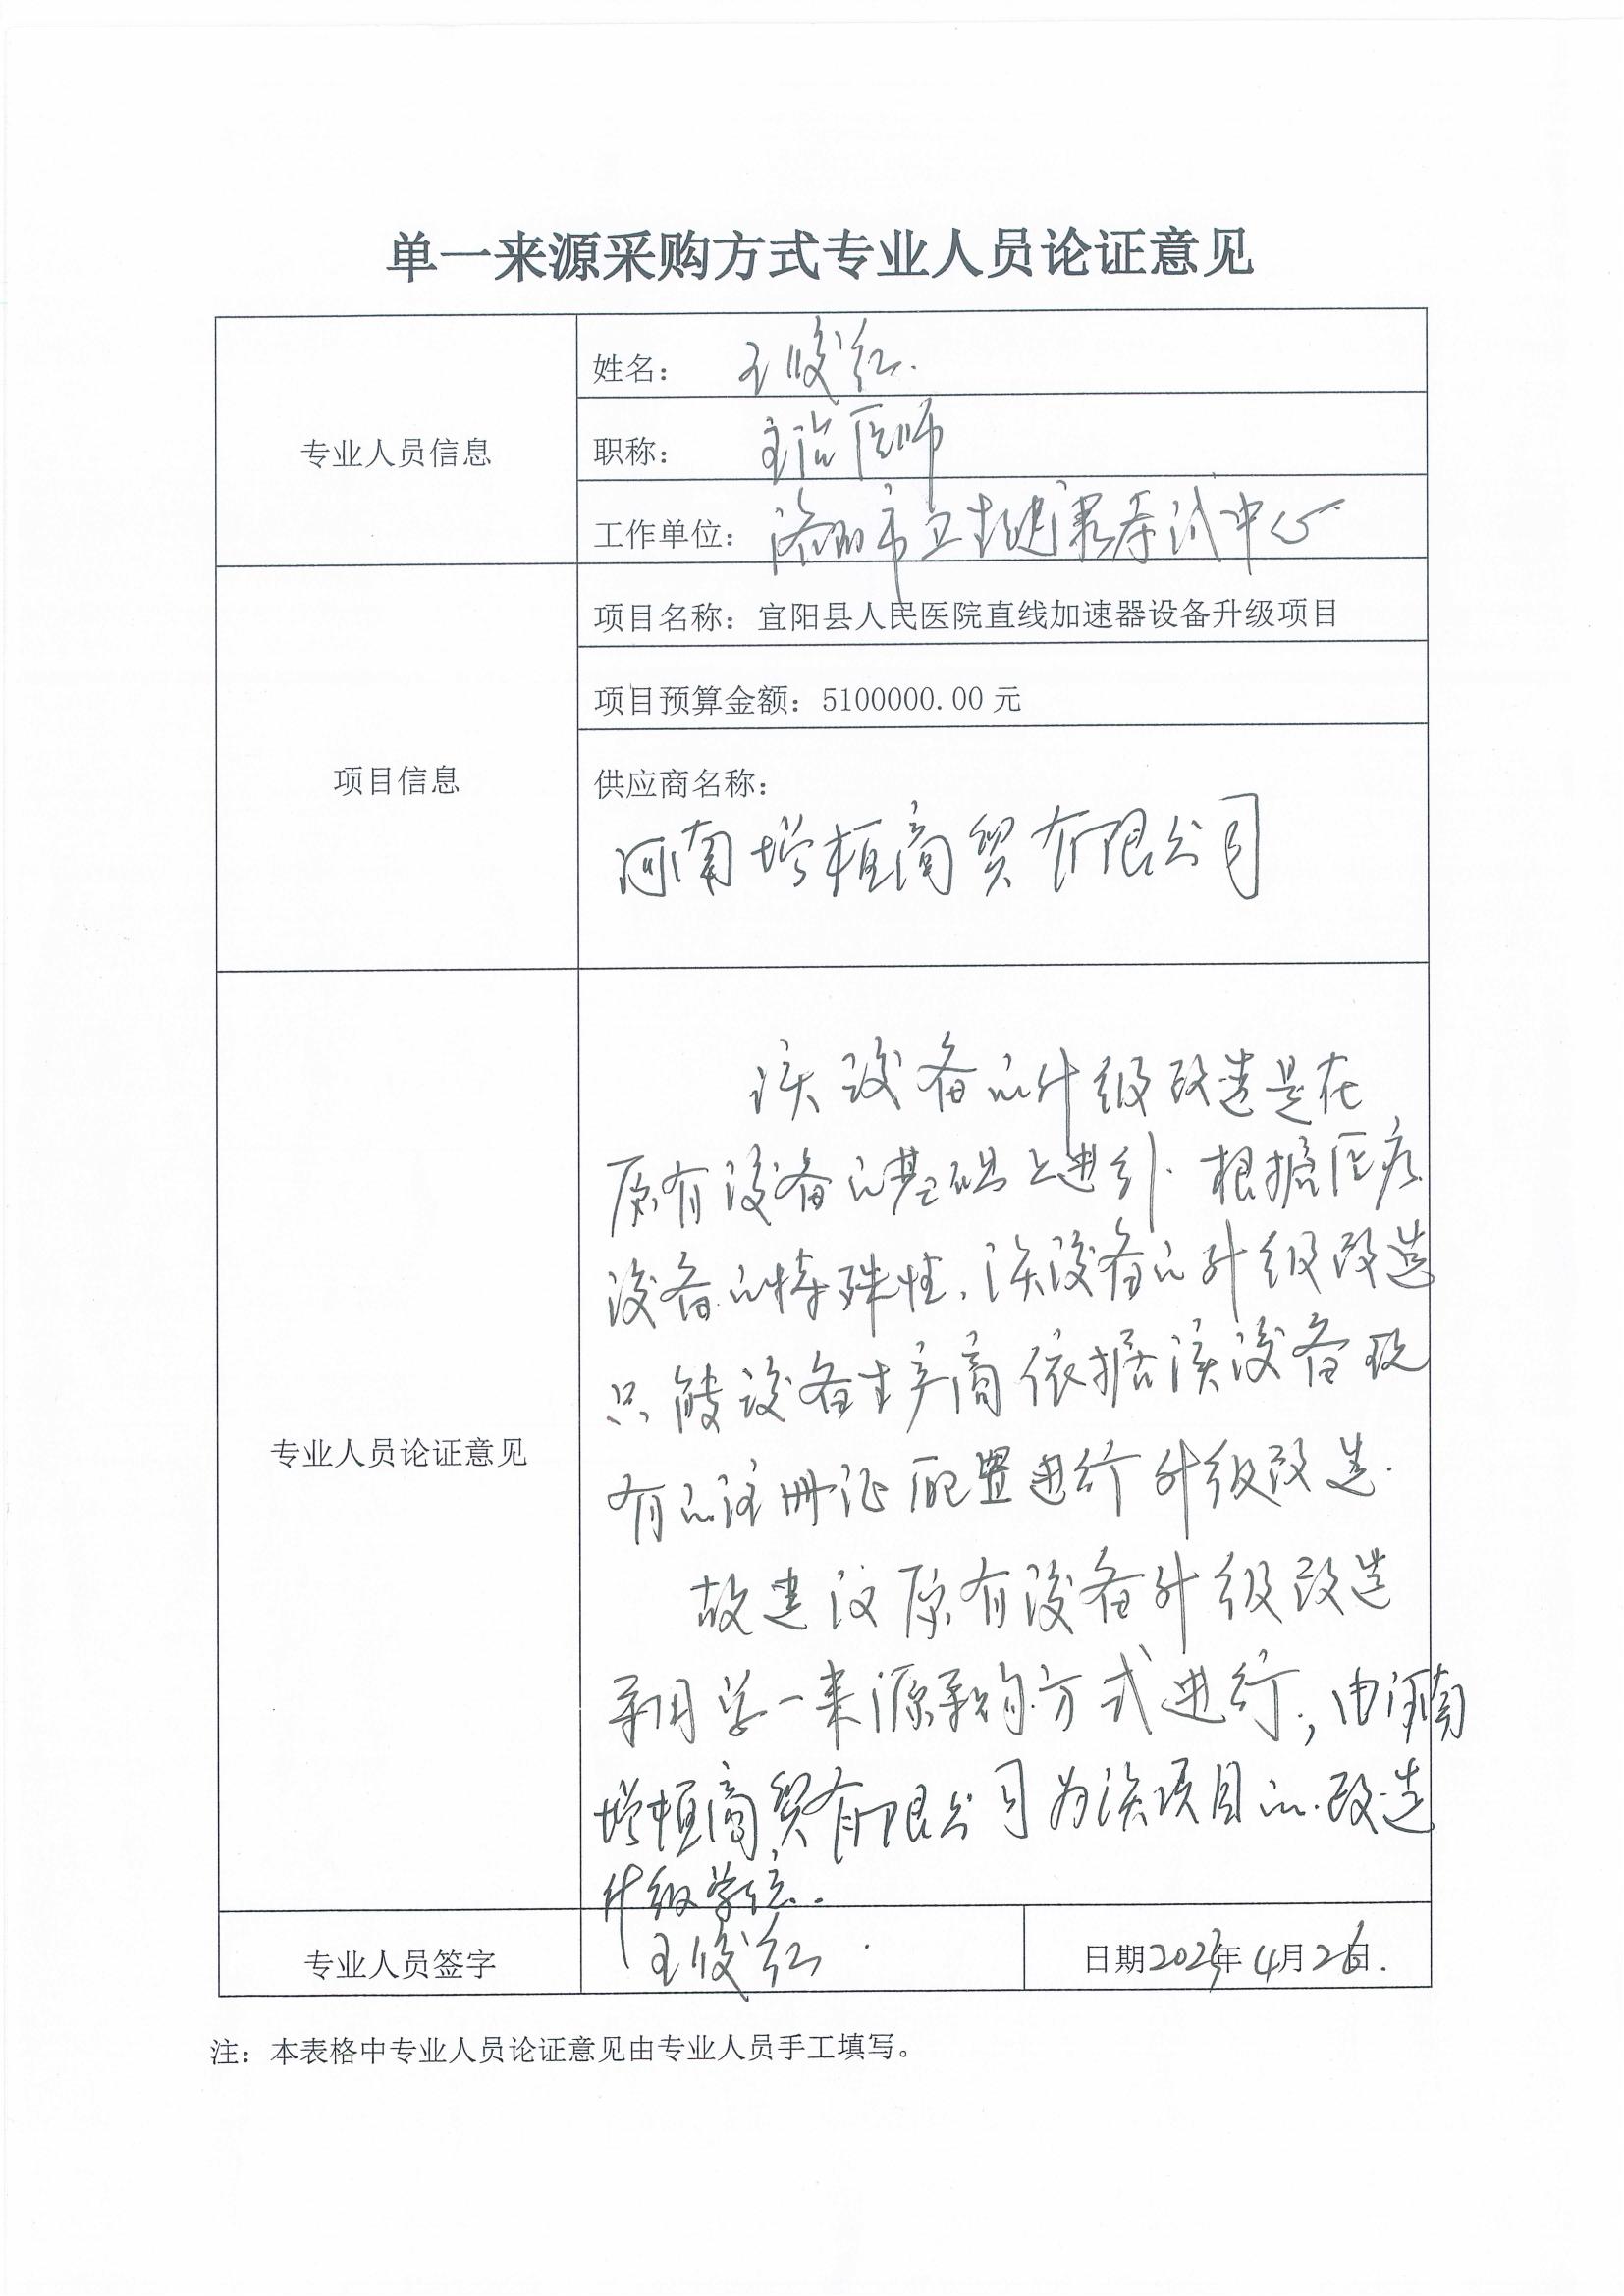 单一来源采购方式专业人员论证意见
专业人员信息
姓名：王俊红
职称：主治医师
工作单位：洛阳市卫生健康考试中心
项目信息
项目名称：宜阳县人民医院直线加速器设备升级项目
项目预算金额：5100000.00元
供应商名称：
河南增植商贸有限公司
专业人员论证意见
该设备的升级改造是在
原有设备的基础上进行.根据医疗
设备的特殊性,该设备的升级改造
只能设备生产商依据该设备现
有的注册证配置进行升级改造.
故建议原有设备升级改造
采用单一来源采购方式进行,由河南
增植商贸有限公司为该项目的改造
升级单位.
专业人员签字
王俊红
日期2025年4月26日.
注：本表格中专业人员论证意见由专业人员手工填写。